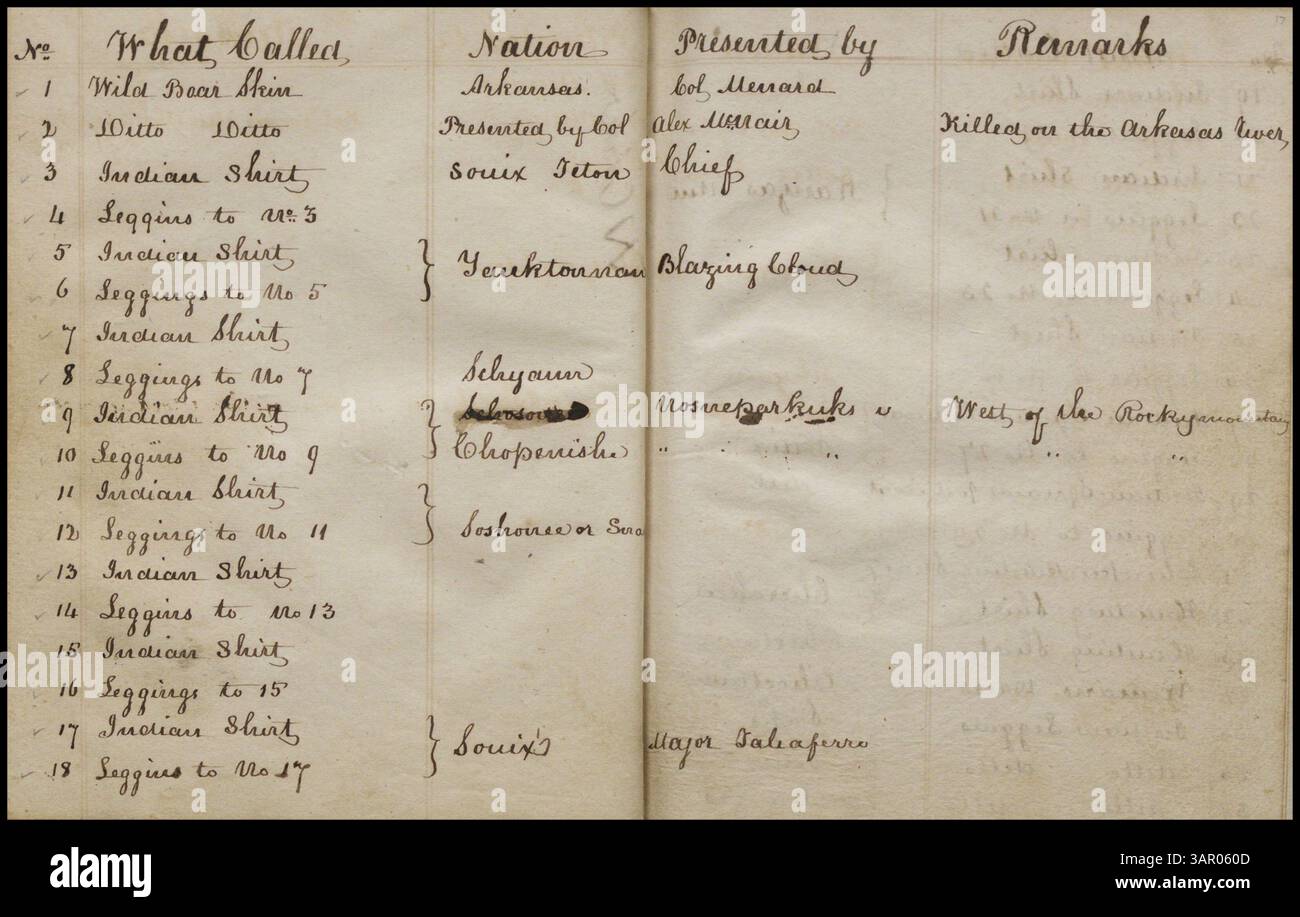 No. What Called Nation Presented by Remarks
1 Wild Boar Skin Arkansas. Col Menard
2 Ditto Ditto Presented by Col Alex McNair Killed on the Arkasas River
3 Indian Shirt Souix Teton Chief
4 Leggins to No. 3
5 Indian Shirt
Yanktonnan Blazing Cloud
6 Leggings to No 5
7 Indian Shirt
8 Leggings to No 7 Schyann
9 Indian Shirt West of the Rocky mountain
10 Leggins to No 9 Chopenishe " " " "
11 Indian Shirt
12 Leggings to No 11 Soshonee or Sna
13 Indian Shirt
14 Leggins to No 13
15 Indian Shirt
16 Leggings to 15
17 Indian Shirt
Souix Major Taliaferro
18 Leggins to No 17
alamy
Image ID: 3AR060D
www.alamy.com